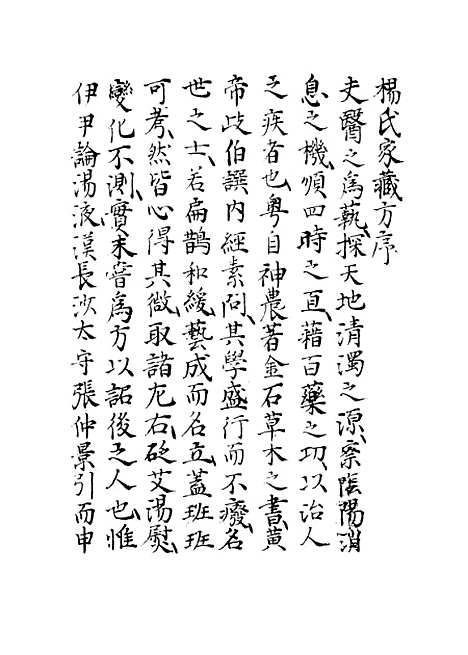 楊氏家藏方序
夫醫之爲蓺探天地清濁之源察陰陽消
息之機順四時之宜藉百藥之功以治人
之疾者也粤自神農著金石草木之書黄
帝歧伯譔内經素问其學盛行而不癈名
世之士若扁鵲和緩藝成而名立蓋班班
可考然皆心得其微取諸左右砭艾湯熨
變化不測實未甞爲方以詔後之人也惟
伊尹論湯液漢長沙太守張仲景引而申